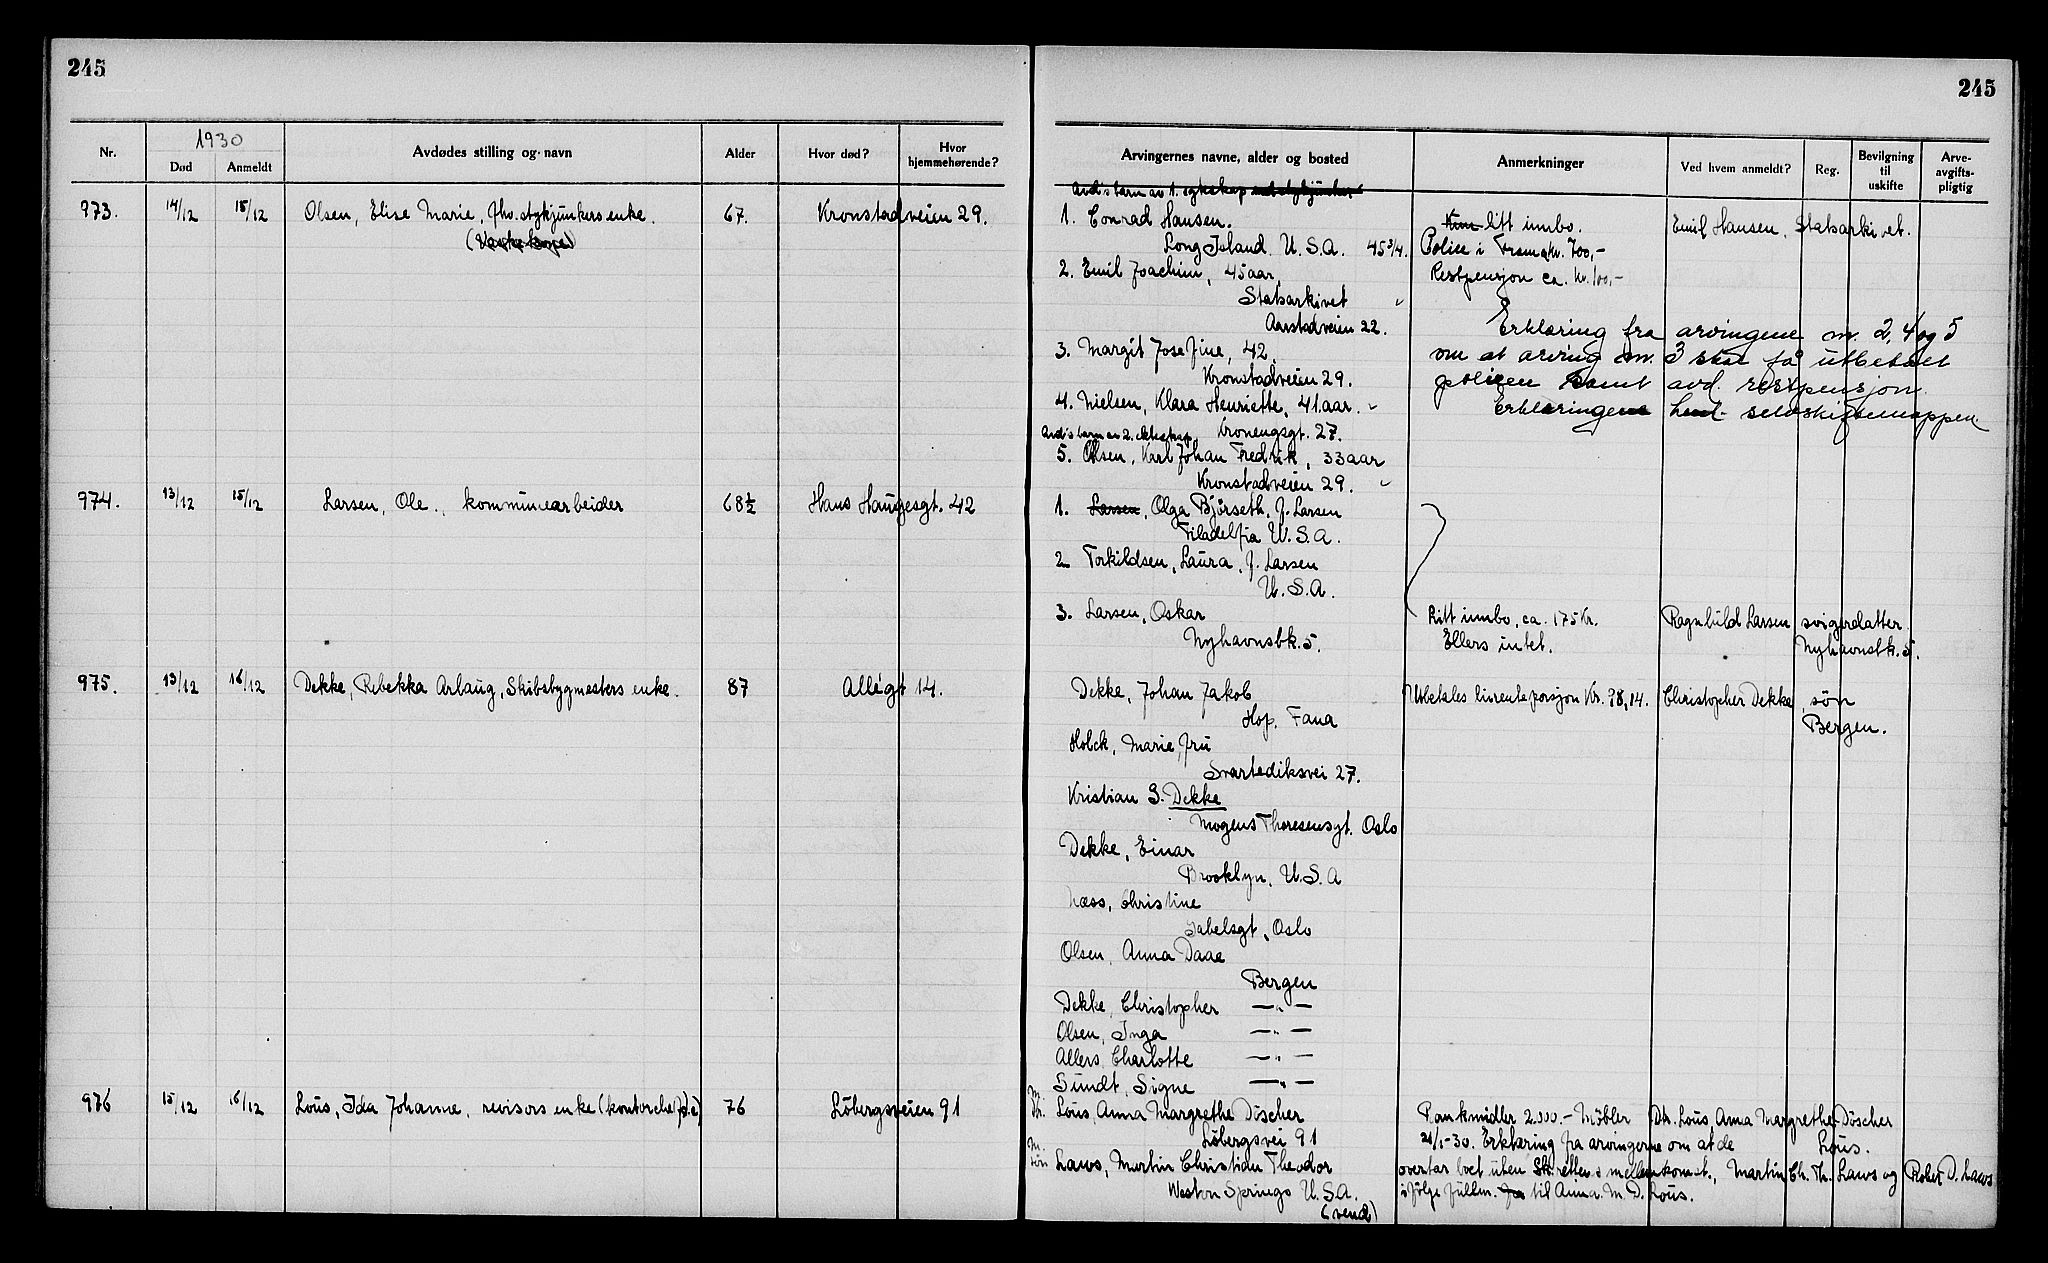 245
245
Nr.
1930
Død
Anmeldt
Avdødes stilling og navn
Alder
Hvor død?
Hvor hjemmehørende?
Arvingernes navne, alder og bosted
Anmerkninger
Ved hvem anmeldt?
Reg.
Bevilgning til uskifte
Arve-avgifts-pligtig
973. 14/12 15/12 Olsen, Elise Marie, fhv. stykjunkers enke. 67. Kronstadveien 29.
Avd's barn av 1. egteskap
1. Conrad Hansen.
Long Island U.S.A. 45 3/4.
2. Emil Joachim, 45 aar,
Statsarkivet "
Aarstadveien 22.
3. Margit Josefine, 42,
Kronstadveien 29.
4. Nielsen, Klara Henriette, 41 aar. "
Avd's barn av 2. ekteskap Kronengsgt. 27.
5. Olsen, Karl Johan Fredrik, 33 aar
Kronstadveien 29. "
Kun litt innbo.
Police i Fram kr. 700,-
Restpensjon ca. kr. 100,-
Erklæring fra arvingene nr. 2, 4 og 5
om at arving nr. 3 skal få utbetalt
policen samt avd. restpensjon.
Erklæringene selvskiftemappen
Emil Hansen, Statsarkivet.
974. 13/12 15/12 Larsen, Ole, kommunearbeider 68½ Hans Haugesgt. 42
1. Larsen, Olga Björseth, f. Larsen
Filadelfia U.S.A.
2 Torkildsen, Laura, f. Larsen
U.S.A.
3. Larsen, Oskar
Nyhavnsbk. 5.
Litt innbo, ca. 175 kr.
Ellers intet.
Ragnhild Larsen svigerdatter.
Nyhavnsbk. 5.
975. 13/12 16/12 Dekke, Rebekka Arbaug, Skibsbygmesters enke. 87 Allégt 14.
Dekke, Johan Jakob
Hop, Fana
Holck, Marie, fru
Svartediksvei 27.
Kristian S. Dekke
Mogens Thoresensgt. Oslo
Dekke, Einar
Brooklyn, U.S.A
Næss, Christine
Gabelsgt, Oslo
Olsen, Anna Daae
Bergen
Dekke, Christopher —"—
Olsen, Inga —"—
Allers, Charlotte —"—
Sundt, Signe —"—
Utbetales livrenteporsjon kr. 98,14.
Christopher Dekke, søn
Bergen.
976 15/12 16/12 Loüs, Ida Johanne, revisors enke (kontorchef 76 Löbergsveien 91
M. Dt. Loüs, Anna Margrethe Döscher
Löbergsvei 91
M. søn Laws, Martin Christian Theodor
Weston Springs U.S.A.
(vend)
Bankmidler 2.000.- Møbler Dt. Loüs Anna Margrethe Döscher
21/1-30. Erklæring fra arvingerne om at de Loüs.
overtar boet uten Sk.rettens mellemkomst., Martin Ch. Th. Laws og Robert D. Laws
ifølge fullm. til Anna M. D. Loüs.